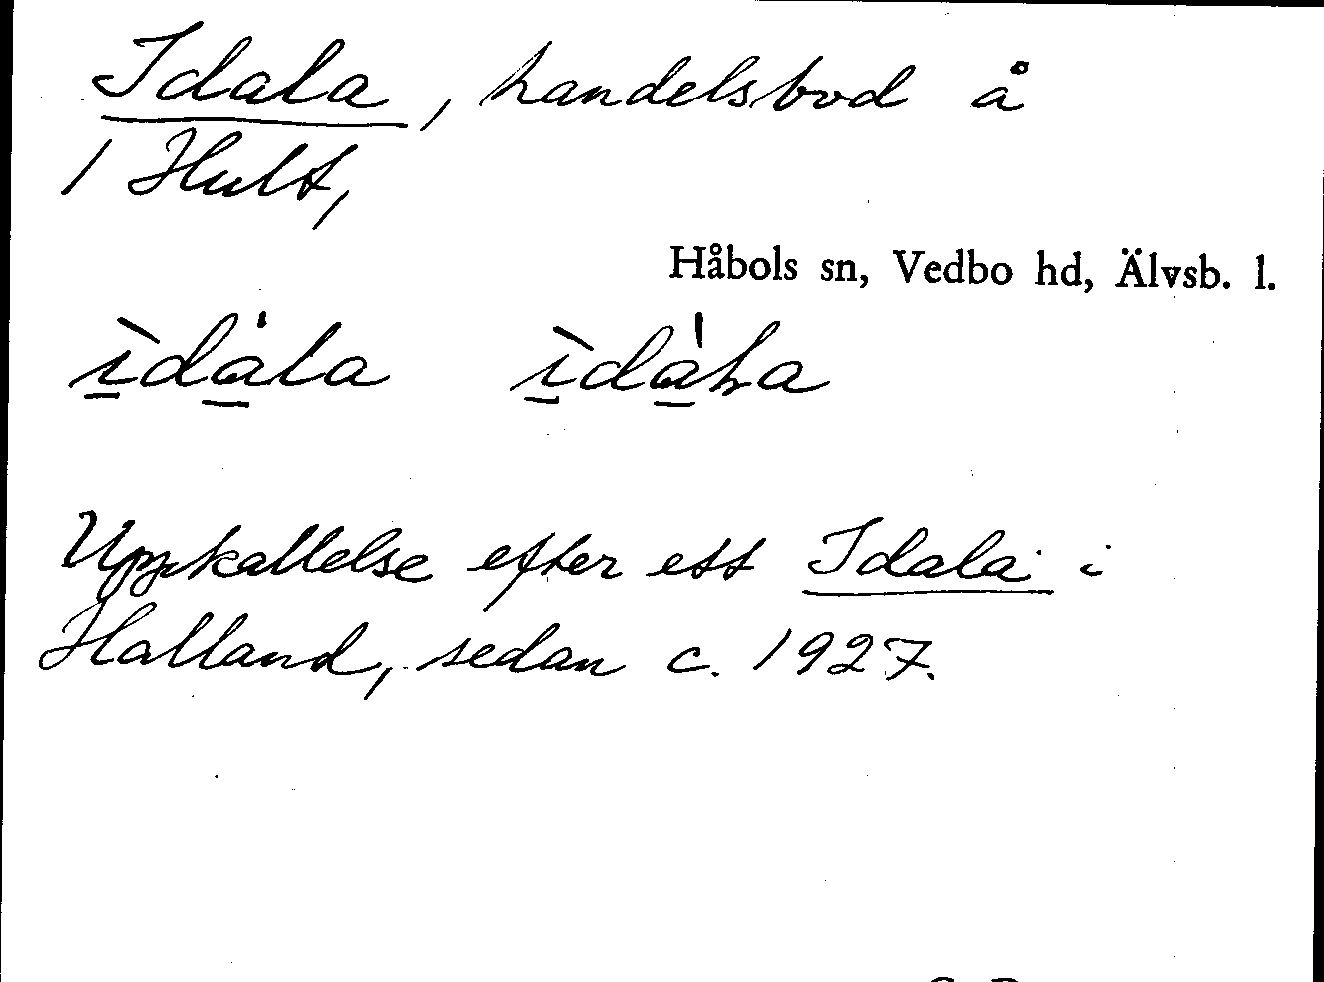 Idala, handelsbod å
1 Hult,
Håbols sn, Vedbo hd, Älvsb. l.
ìdȧla ìdȧƚa
Uppkallelse efter ett Idala i
Halland, sedan c. 1927.